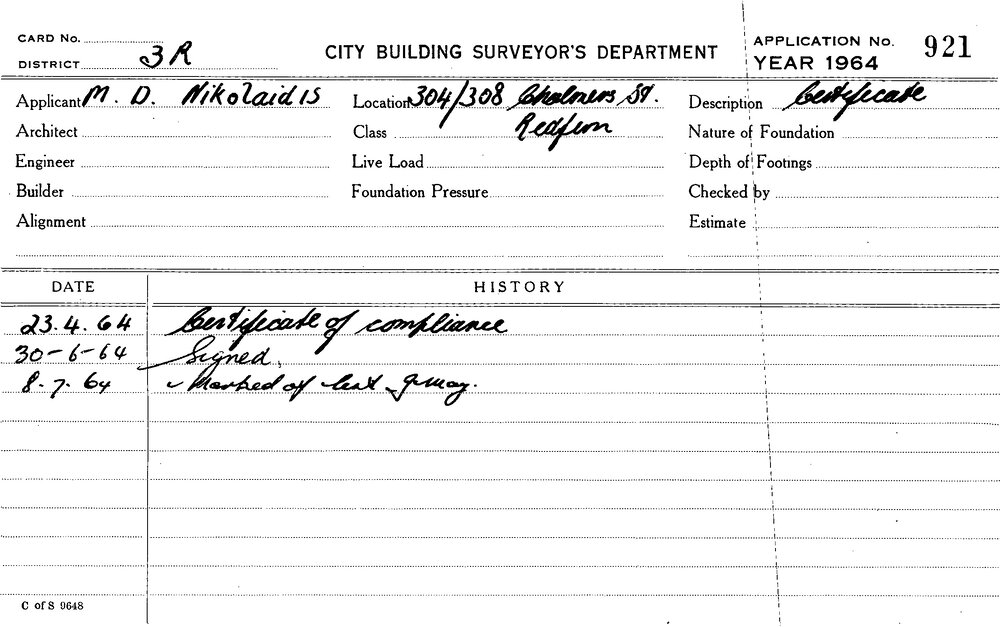 CARD No.
DISTRICT 3R
CITY BUILDING SURVEYOR'S DEPARTMENT
APPLICATION No. 921
YEAR 1964
Applicant M. D. Nikolaidis
Location 304/308 Chalmers St.
Redfern
Description Certificate
Architect
Class
Nature of Foundation
Engineer
Live Load
Depth of Footings
Builder
Foundation Pressure
Checked by
Alignment
Estimate
DATE HISTORY
23.4.64 Certificate of compliance
30-6-64 Signed.
8.7.64 Marked of
C of S 9648